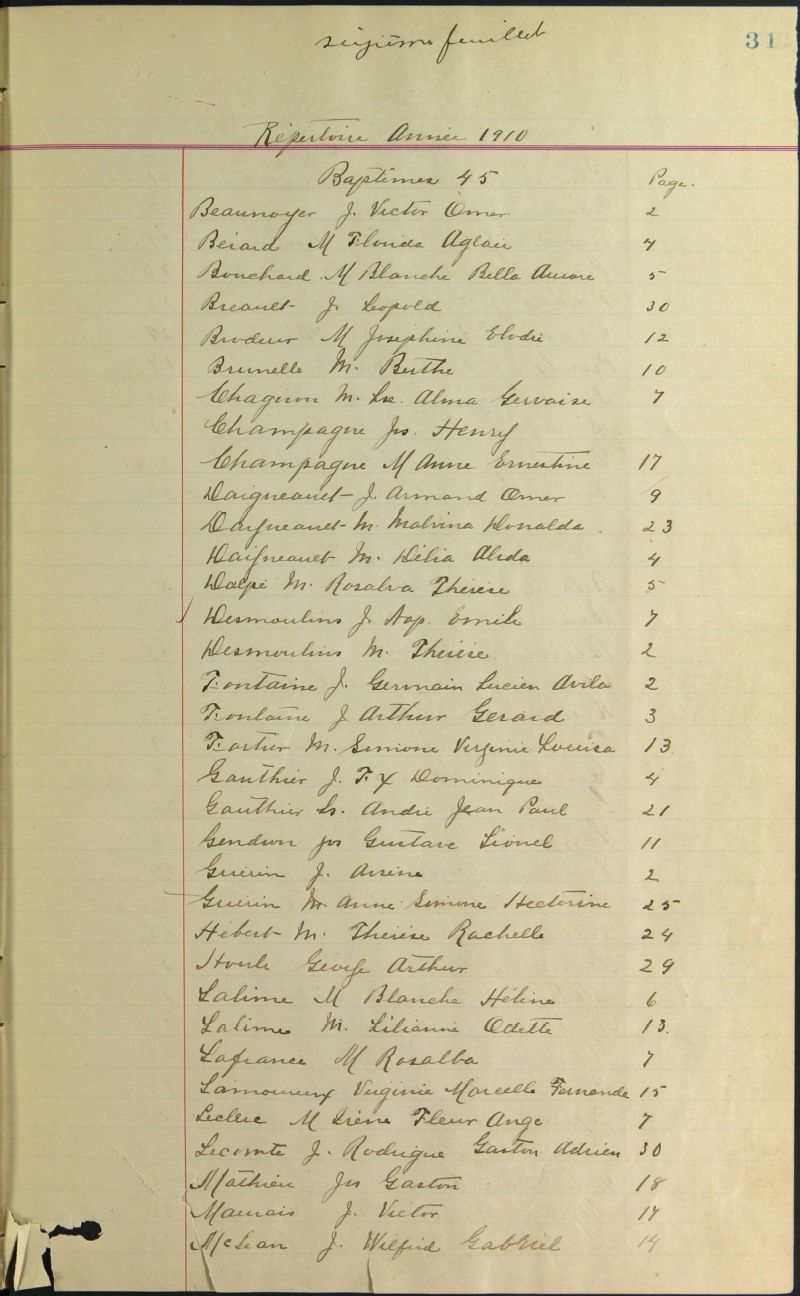 sizième feuillet
31
Répertoire Année 1910
Baptêmes 45 Page.
Beaunoyer J. Victor Omer 2
Bérard M Florida Aglaée 4
Bouchard M Blanche Bella Aurore 5
Breault J. Leopold 30
Brodeur M Josephine Elodie 12
Brunelle M. Berthe 10
Chagnon M. Lse. Alma Gervaise 7
Champagne Jos. Henry
Champagne M Anne Ernestine 17
Daigneault J. Armand Omer 9
Daigneault M. Malvina Donalda 23
Daigneault M. Délia Alida 4
Dalpé M. Rosalva Thérèse 5
Desmoulins J. Nap. Emile 7
Desmoulins M. Thérèse 2
Fontaine J. Germain Lucien Avila 2
Fontaine J Arthur Gerard 3
Fortier M. Simone Virginie Louisa 13.
Gauthier J. F. X Dominique 4
Gauthier Ls. André Jean Paul 21
Gendron Jos Gustave Lionel 11
Guérin J. Arsène 2
Guérin M. Anne Simone Hectorine 25
Hébert M. Thérèse Rachelle 24
Houle George Arthur 29
Lalime M Blanche Hélène 6
Lalime M. Lilianne Odette 13.
Lafrance M Rosalba 7
Lamoureux Virginie Marcelle Fernande 15
Leclerc M Irène Fleur Ange 7
Lecomte J. Rodrigue Gaston Adrien 30
Mathieu Jos Gaston 18
Marrais J. Victor 17
McLean J. Wilfrid Gabriel 14